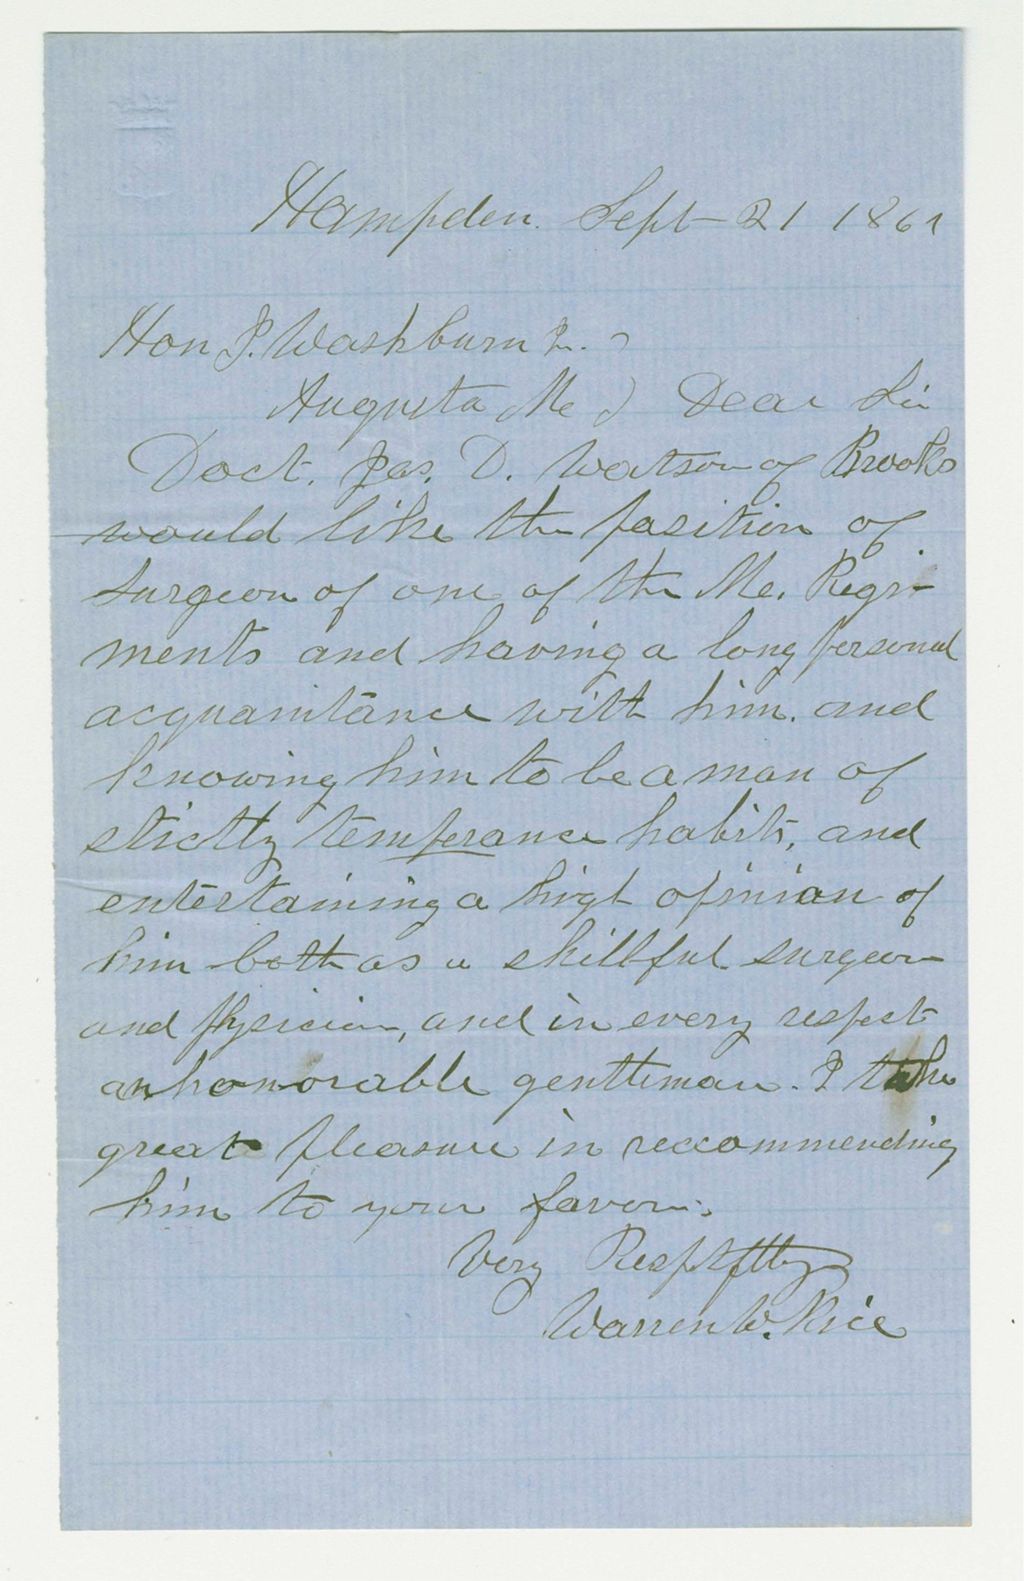 Hampden. Sept 21 1861
Hon I. Washburn Jr. )
Augusta Me ) Dear Sir
Doct. Jas. D. Watson of Brooks
would like the position of
surgeon of one of the Me. Regi-
ments and having a long personal
acquaintance with him. and
knowing him to be a man of
strictly temperance habits, and
entertaining a high opinion of
him both as a skillful surgeon
and physician, and in every respect
an honorable gentleman. I take
great pleasure in reccommending
him to your favor.
Very Respectflly
Warren W. Rice